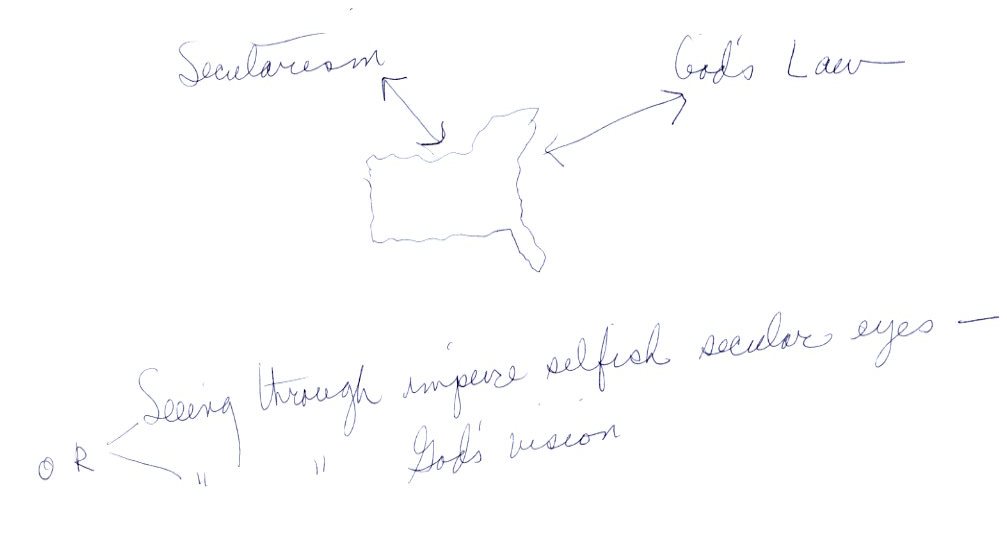 Secularism
God's Law
Seeing through impure selfish secular eyes —
OR
" " God's vision